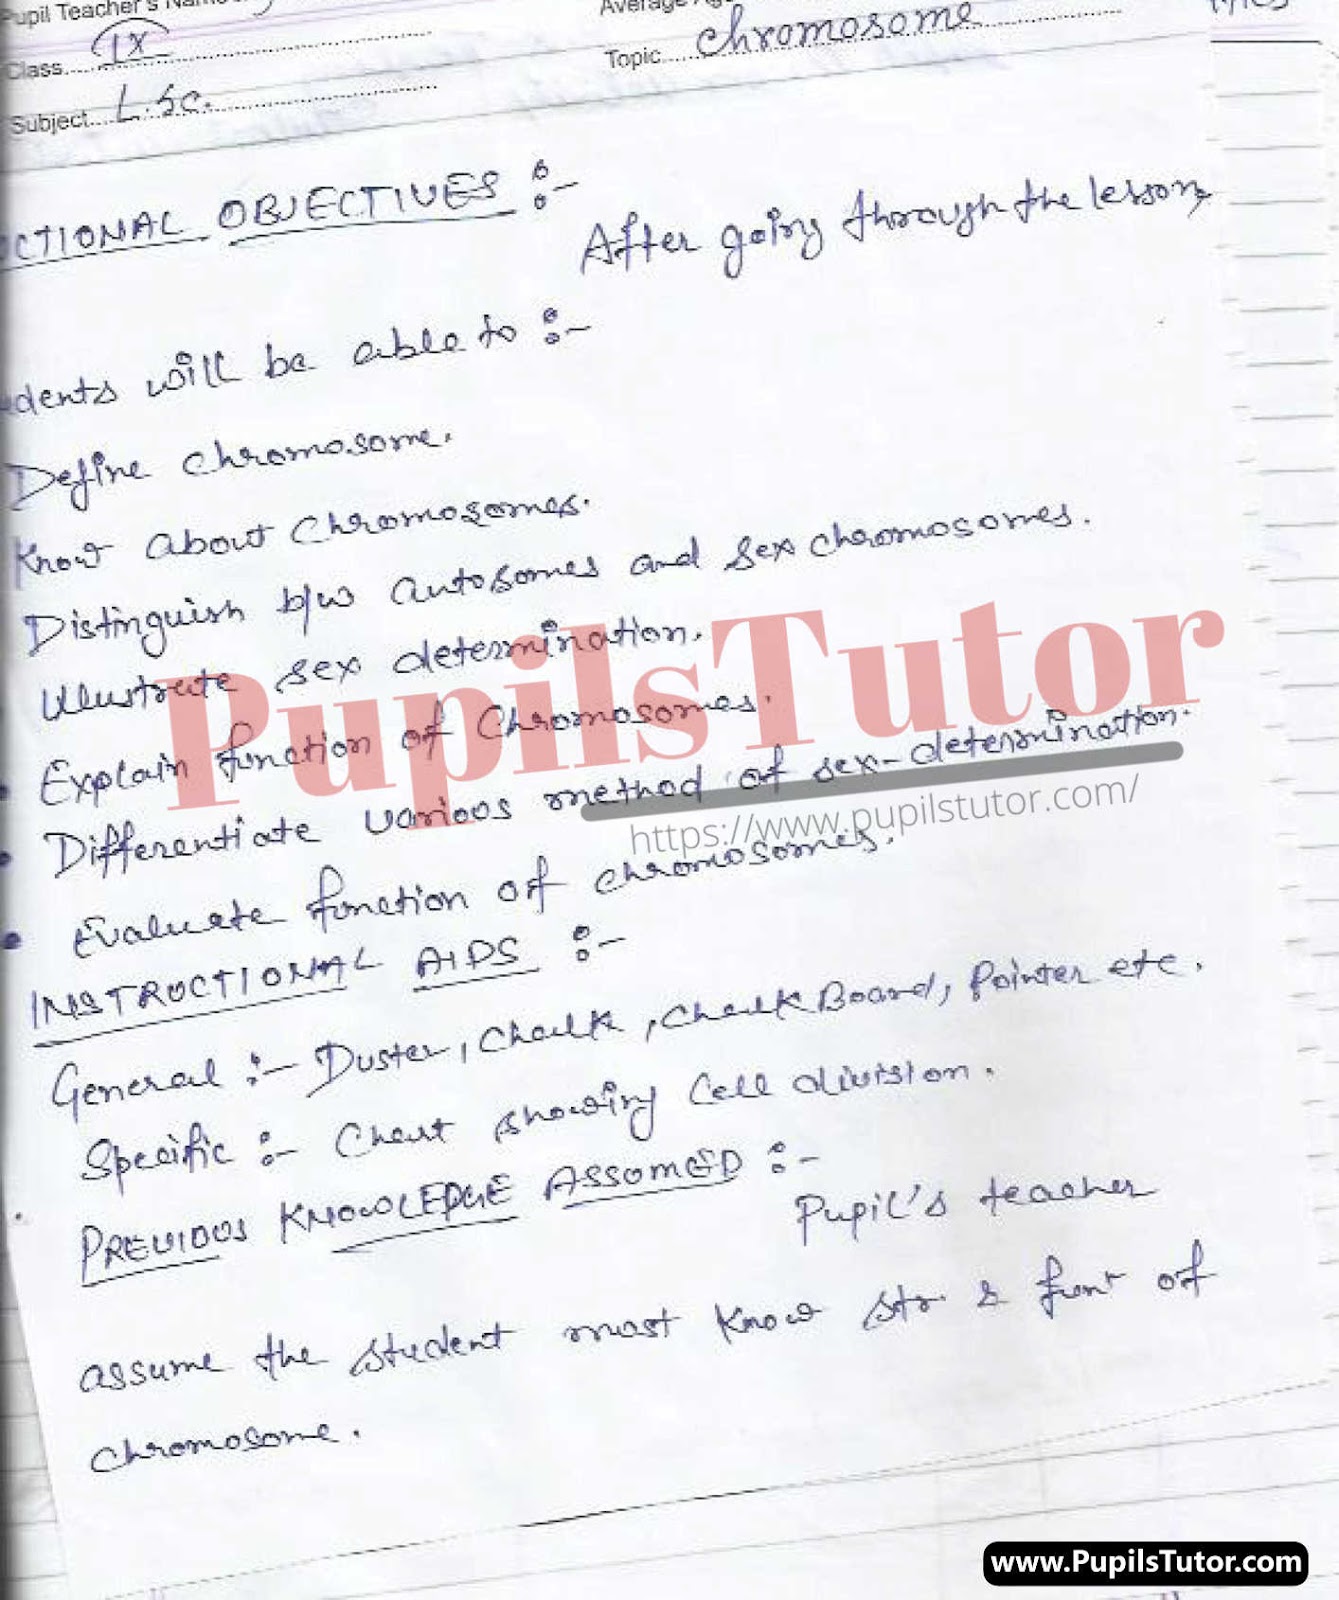 Pupil Teacher's Name
Class IX
Subject L.Sc.
Topic Chromosome
CTIONAL OBJECTIVES :-
After going through the lesson,
dents will be able to :-
Define chromosome.
Know about Chromosomes.
Distinguish b/w autosomes and sex chromosomes.
Illustrate sex determination.
• Explain function of Chromosomes.
• Differentiate various method of sex-determination.
• Evaluate function of chromosomes.
INSTRUCTIONAL AIDS :-
General :- Duster, Chalk, Chalk Board, Pointer etc.
Specific :- Chart showing Cell division.
PREVIOUS KNOWLEDGE ASSUMED :-
Pupil's teacher
assume the student must know str. & funt of
Chromosome.
PupilsTutor
https://www.pupilstutor.com/
www.PupilsTutor.com